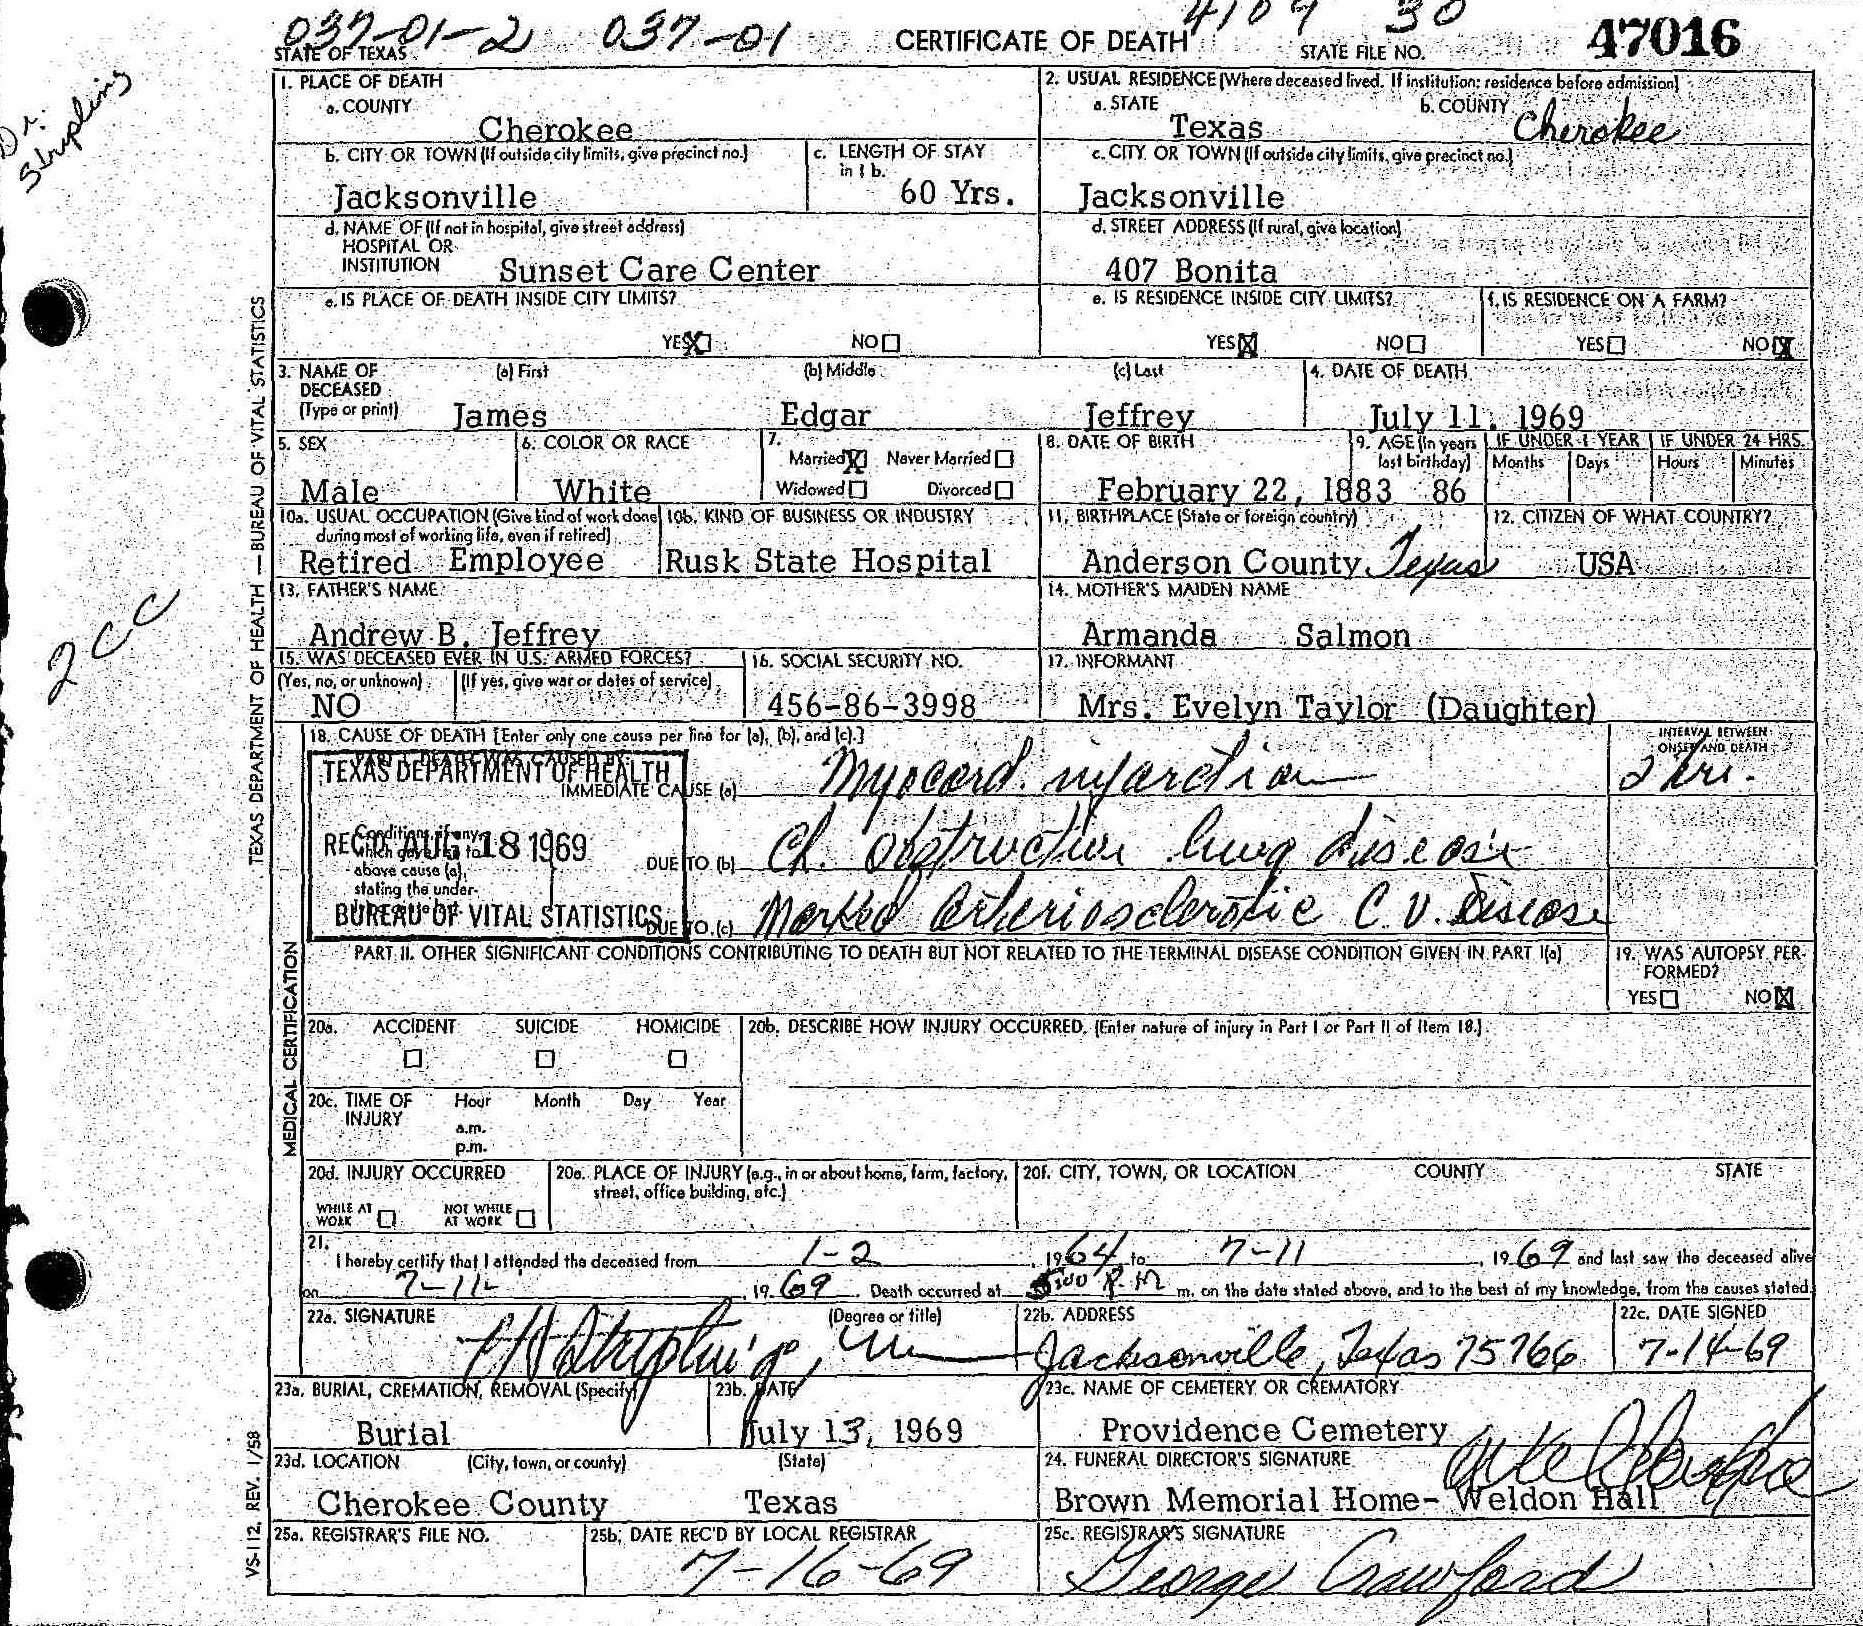 037-01-2 037-01 4109 30
STATE OF TEXAS CERTIFICATE OF DEATH STATE FILE NO. 47016
Dr. Stripling
2 CC
TEXAS DEPARTMENT OF HEALTH — BUREAU OF VITAL STATISTICS
1. PLACE OF DEATH
a. COUNTY
Cherokee
2. USUAL RESIDENCE (Where deceased lived. If institution: residence before admission)
a. STATE b. COUNTY
Texas Cherokee
b. CITY OR TOWN (If outside city limits, give precinct no.)
Jacksonville
c. LENGTH OF STAY in 1 b.
60 Yrs.
c. CITY OR TOWN (If outside city limits, give precinct no.)
Jacksonville
d. NAME OF (If not in hospital, give street address)
HOSPITAL OR
INSTITUTION Sunset Care Center
d. STREET ADDRESS (If rural, give location)
407 Bonita
e. IS PLACE OF DEATH INSIDE CITY LIMITS?
YES X NO
e. IS RESIDENCE INSIDE CITY LIMITS?
YES X NO
f. IS RESIDENCE ON A FARM?
YES NO X
3. NAME OF DECEASED (Type or print)
(a) First (b) Middle (c) Last
James Edgar Jeffrey
4. DATE OF DEATH
July 11, 1969
5. SEX
Male
6. COLOR OR RACE
White
7.
Married X Never Married
Widowed Divorced
8. DATE OF BIRTH
February 22, 1883
9. AGE (In years last birthday)
86
IF UNDER 1 YEAR IF UNDER 24 HRS.
Months Days Hours Minutes
10a. USUAL OCCUPATION (Give kind of work done during most of working life, even if retired)
Retired Employee
10b. KIND OF BUSINESS OR INDUSTRY
Rusk State Hospital
11. BIRTHPLACE (State or foreign country)
Anderson County, Texas
12. CITIZEN OF WHAT COUNTRY?
USA
13. FATHER'S NAME
Andrew B. Jeffrey
14. MOTHER'S MAIDEN NAME
Armanda Salmon
15. WAS DECEASED EVER IN U.S. ARMED FORCES?
(Yes, no, or unknown) (If yes, give war or dates of service)
NO
16. SOCIAL SECURITY NO.
456-86-3998
17. INFORMANT
Mrs. Evelyn Taylor (Daughter)
MEDICAL CERTIFICATION
18. CAUSE OF DEATH [Enter only one cause per line for (a), (b), and (c).]
PART I. DEATH WAS CAUSED BY:
INTERVAL BETWEEN ONSET AND DEATH
IMMEDIATE CAUSE (a) Myocard. infarction 2 hrs.
Conditions, if any, which gave rise to above cause (a), stating the under-
DUE TO (b) Ch. Obstructive lung disease
DUE TO (c) Marked Arteriosclerotic C.V. Disease
TEXAS DEPARTMENT OF HEALTH
REC'D AUG 18 1969
BUREAU OF VITAL STATISTICS
PART II. OTHER SIGNIFICANT CONDITIONS CONTRIBUTING TO DEATH BUT NOT RELATED TO THE TERMINAL DISEASE CONDITION GIVEN IN PART I(a)
19. WAS AUTOPSY PERFORMED?
YES NO X
20a. ACCIDENT SUICIDE HOMICIDE
20b. DESCRIBE HOW INJURY OCCURRED. (Enter nature of injury in Part I or Part II of Item 18.)
20c. TIME OF INJURY Hour Month Day Year
a.m.
p.m.
20d. INJURY OCCURRED
WHILE AT WORK NOT WHILE AT WORK
20e. PLACE OF INJURY (e.g., in or about home, farm, factory, street, office building, etc.)
20f. CITY, TOWN, OR LOCATION COUNTY STATE
21.
I hereby certify that I attended the deceased from 1-2, 1964 to 7-11, 1969 and last saw the deceased alive
on 7-11-, 1969. Death occurred at 5:00 P.M m. on the date stated above, and to the best of my knowledge, from the causes stated.
22a. SIGNATURE (Degree or title)
Stripling,
22b. ADDRESS
Jacksonville, Texas 75766
22c. DATE SIGNED
7-14-69
23a. BURIAL, CREMATION, REMOVAL (Specify)
Burial
23b. DATE
July 13, 1969
23c. NAME OF CEMETERY OR CREMATORY
Providence Cemetery
23d. LOCATION (City, town, or county) (State)
Cherokee County Texas
24. FUNERAL DIRECTOR'S SIGNATURE
Brown Memorial Home- Weldon Hall
25a. REGISTRAR'S FILE NO.
25b. DATE REC'D BY LOCAL REGISTRAR
7-16-69
25c. REGISTRAR'S SIGNATURE
George Crawford
VS-112, REV. 1/58